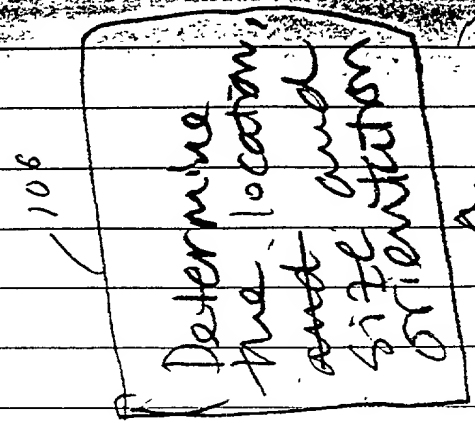 106
Determine
the location,
and and
size and
orientation